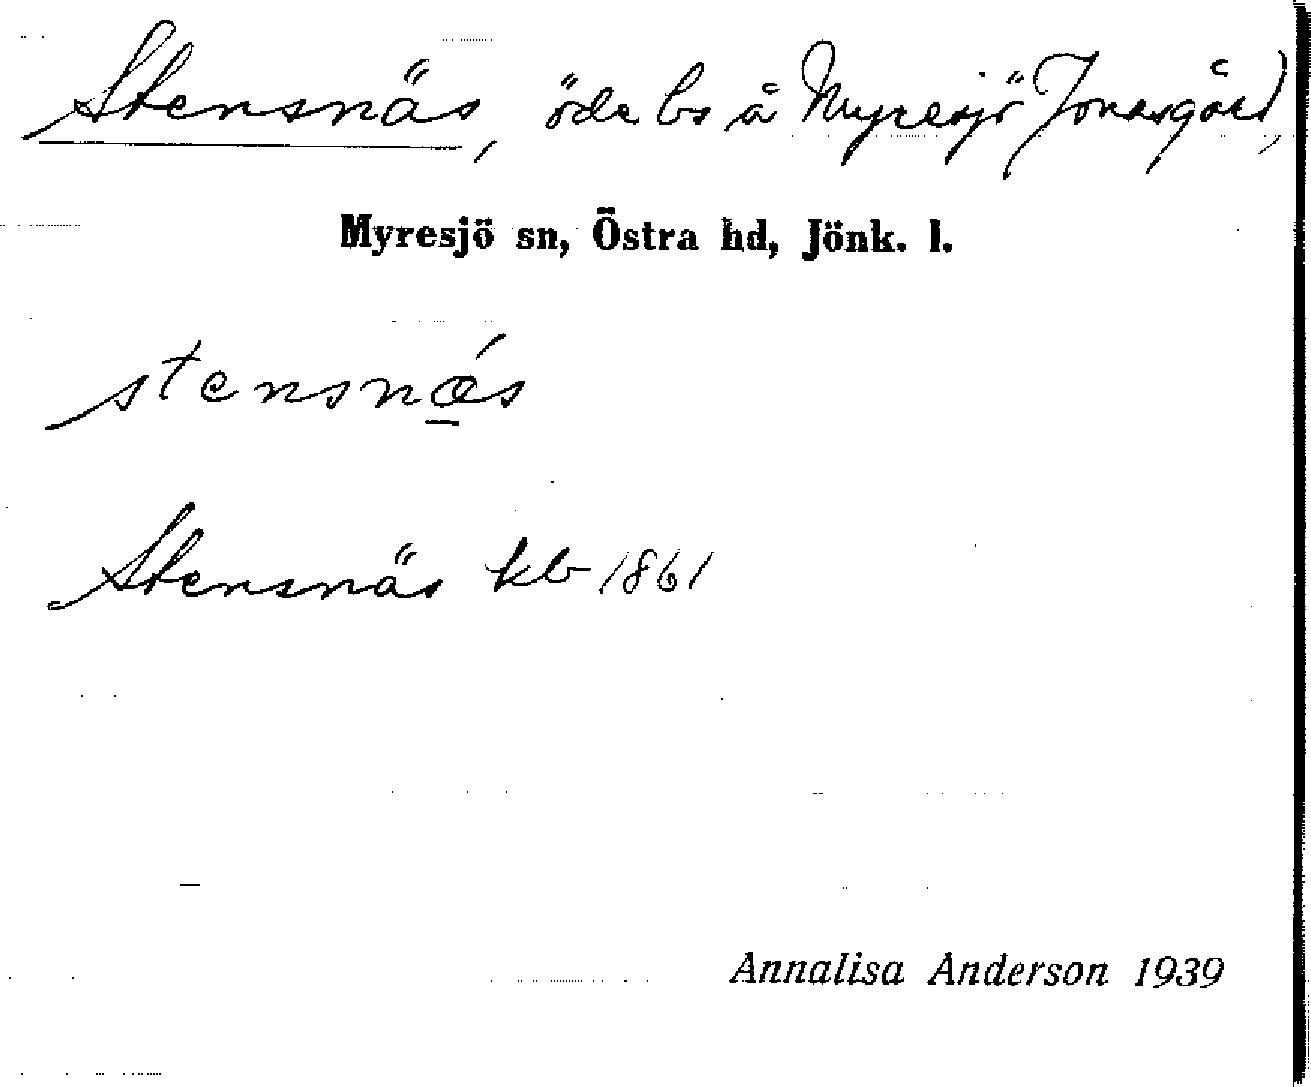 Stensnäs, öde bs å Myresjö Jonasgård,
Myresjö sn, Östra hd, Jönk. l.
stensnǽs
Stensnäs kb 1861
Annalisa Anderson 1939